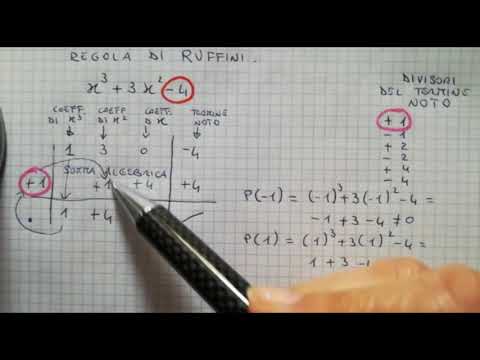 REGOLA DI RUFFINI.
x³ + 3x² - 4
COEFF. DI x³
COEFF. DI x²
COEFF. DI x
TERMINE NOTO
1 3 0 -4
SOMMA ALGEBRICA
+1 +1 +4 +4
1 +4
DIVISORI
DEL TERMINE
NOTO
+1
-1
+2
-2
+4
-4
P(-1) = (-1)³+3(-1)²-4=
-1+3-4≠0
P(1) = (1)³+3(1)²-4=
1+3-